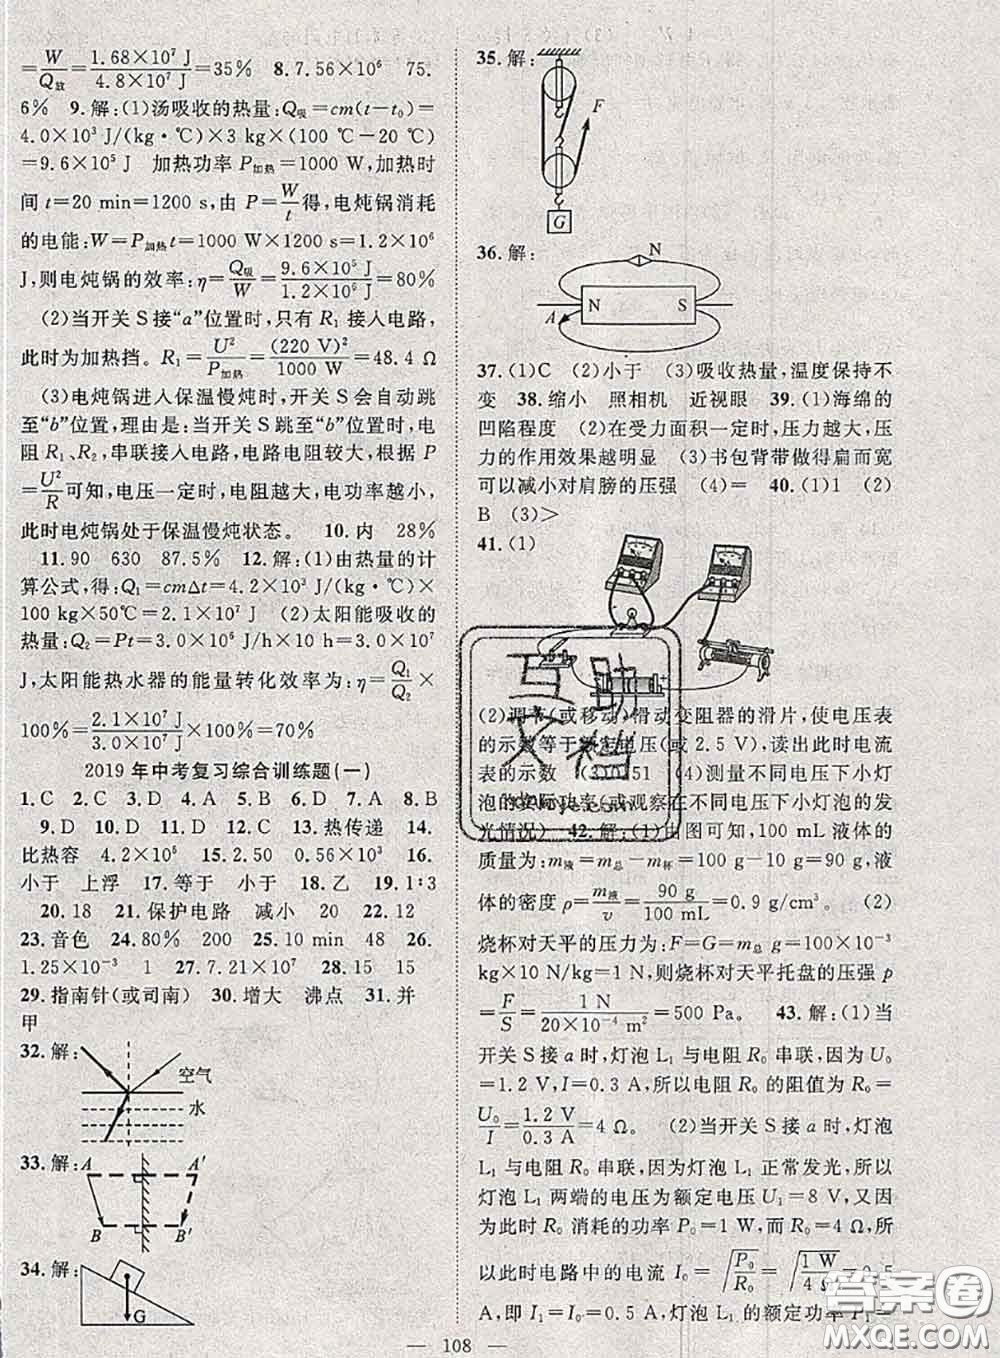 =W/Q放=1.68×10⁷ J/4.8×10⁷ J=35%　8.7.56×10⁶　75.
6%　9.解:(1)汤吸收的热量:Q吸=cm(t-t₀)=
4.0×10³ J/(kg·℃)×3 kg×(100 ℃-20 ℃)
=9.6×10⁵ J　加热功率 P加热=1000 W,加热时
间 t=20 min=1200 s,由 P=W/t得,电炖锅消耗
的电能:W=P加热t=1000 W×1200 s=1.2×10⁶
J,则电炖锅的效率:η=Q吸/W=9.6×10⁵ J/1.2×10⁶ J=80%
(2)当开关 S 接“a”位置时,只有 R₁ 接入电路,
此时为加热挡。R₁=U²/P加热=(220 V)²/1000 W=48.4 Ω
(3)电炖锅进入保温慢炖时,开关 S 会自动跳
至“b”位置,理由是:当开关 S 跳至“b”位置时,电
阻 R₁、R₂,串联接入电路,电路电阻较大,根据 P
=U²/R可知,电压一定时,电阻越大,电功率越小,
此时电炖锅处于保温慢炖状态。　10.内　28%
11.90　630　87.5%　12.解:(1)由热量的计
算公式,得:Q₁=cmΔt=4.2×10³ J/(kg·℃)×
100 kg×50℃=2.1×10⁷ J　(2)太阳能吸收的
热量:Q₂=Pt=3.0×10⁶ J/h×10 h=3.0×10⁷
J,太阳能热水器的能量转化效率为:η=Q₁/Q₂×
100%=2.1×10⁷ J/3.0×10⁷ J×100%=70%
2019年中考复习综合训练题(一)
1.C　2.C　3.D　4.A　5.C　6.D　7.A　8.B
9.D　10.D　11.A　12.C　13.热传递　14.
比热容　4.2×10⁵　15.2.50　0.56×10³　16.
小于　上浮　17.等于　小于　18.乙　19.1∶3
20.18　21.保护电路　减小　20　22.12
23.音色　24.80%　200　25.10 min　48　26.
1.25×10⁻³　1　27.7.21×10⁷　28.15　15
29.指南针(或司南)　30.增大　沸点　31.并
甲
32.解:
空气
水
33.解:
A　A′
B　B′
34.解:
G
35.解:
F
G
36.解:
N
N　S
A
37.(1)C　(2)小于　(3)吸收热量,温度保持不
变　38.缩小　照相机　近视眼　39.(1)海绵的
凹陷程度　(2)在受力面积一定时,压力越大,压
力的作用效果越明显　(3)书包背带做得扁而宽
可以减小对肩膀的压强　(4)=　40.(1)1　(2)
B　(3)>
41.(1)
(2)调节(或移动)滑动变阻器的滑片,使电压表
的示数等于额定电压(或 2.5 V),读出此时电流
表的示数　(3)0.51　(4)测量不同电压下小灯
泡的实际功率(或观察在不同电压下小灯泡的发
光情况)　42.解:(1)由图可知,100 mL 液体的
质量为:m液=m总-m杯=100 g-10 g=90 g,液
体的密度 ρ=m液/v=90 g/100 mL=0.9 g/cm³。　(2)
烧杯对天平的压力为:F=G=m总 g=100×10⁻³
kg×10 N/kg=1 N,则烧杯对天平托盘的压强 p
=F/S=1 N/20×10⁻⁴ m²=500 Pa。　43.解:(1)当
开关 S 接 a 时,灯泡 L₁ 与电阻 R₀ 串联,因为 U₀
=1.2 V,I=0.3 A,所以电阻 R₀ 的阻值为 R₀=
U₀/I=1.2 V/0.3 A=4 Ω。　(2)当开关 S 接 a 时,灯泡
L₁ 与电阻 R₀ 串联,因为灯泡 L₁ 正常发光,所以
灯泡 L₁ 两端的电压为额定电压 U₁=8 V,又因
为此时 R₀ 消耗的功率 P₀=1 W,而 R₀=4 Ω,所
以此时电路中的电流 I₀=√(P₀/R₀)=√(1 W/4 Ω)=0.5
A,即 I₁=I₀=0.5 A,灯泡 L₁ 的额定功率 P₁=
— 108 —
互助
文档
答案圈
MXQE.COM